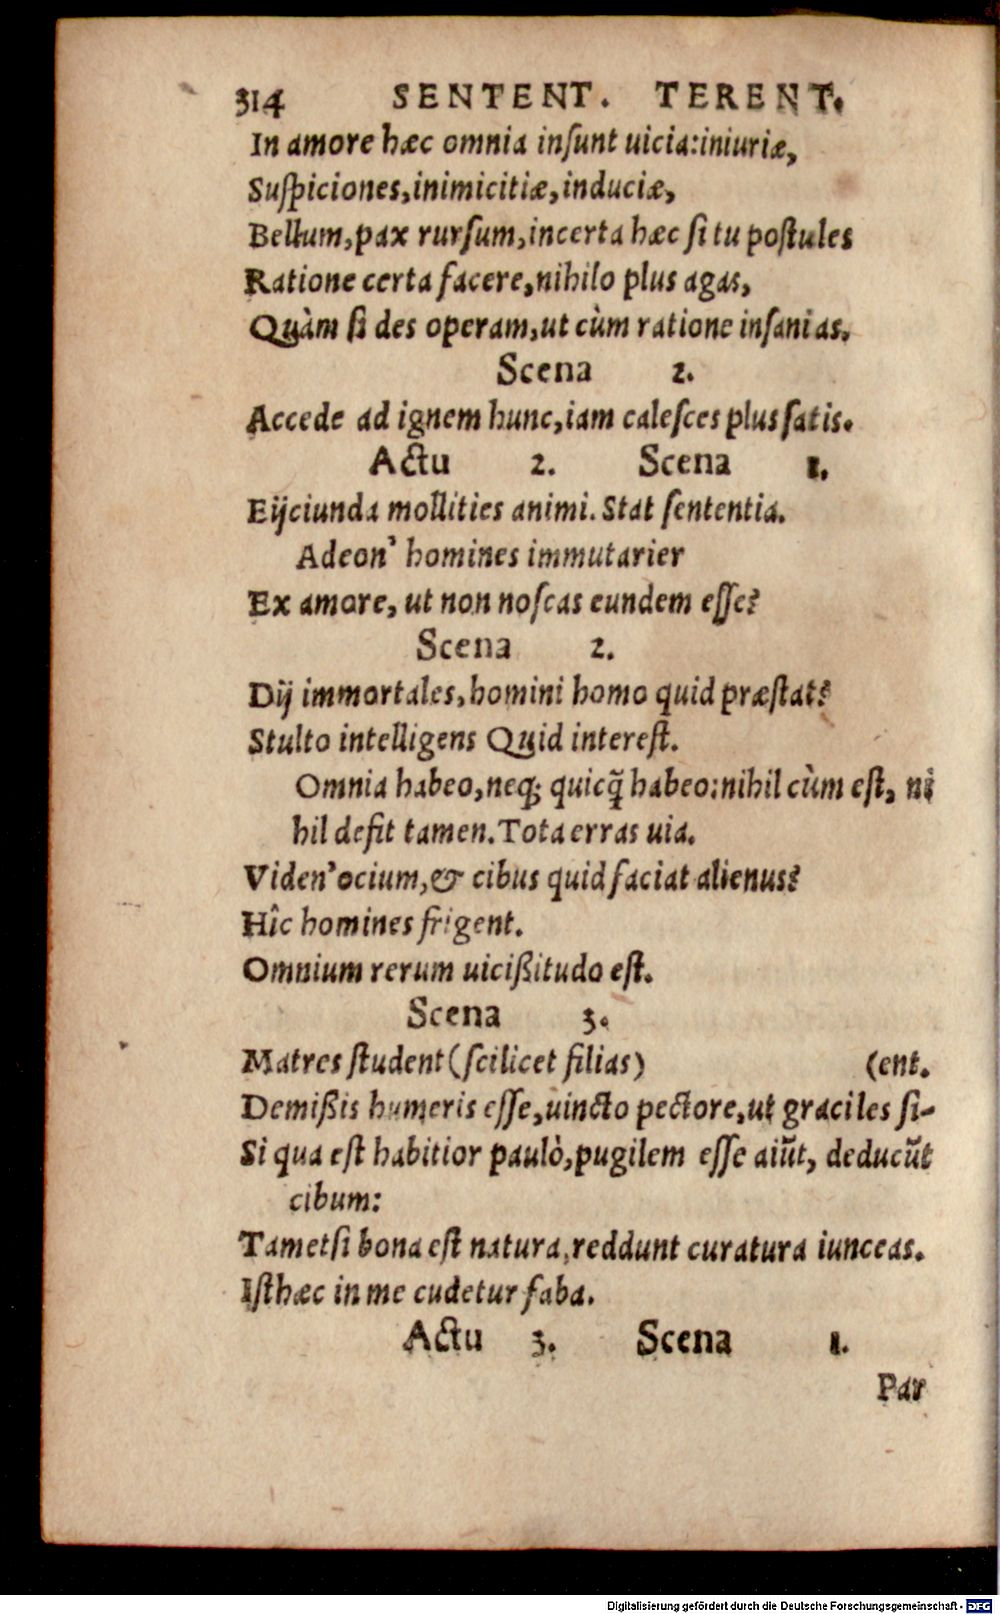 314 SENTENT. TERENT.
In amore hæc omnia inſunt uicia:iniuriæ,
Suſpiciones,inimicitiæ,induciæ,
Bellum,pax rurſum,incerta hæc ſi tu poſtules
Ratione certa facere,nihilo plus agas,
Quàm ſi des operam,ut cùm ratione inſanias.
Scena 2.
Accede ad ignem hunc,iam caleſces plus ſatis.
Actu 2. Scena 1.
Eijciunda mollities animi. Stat ſententia.
Adeon' homines immutarier
Ex amore, ut non noſcas eundem eſſe?
Scena 2.
Dij immortales,homini homo quid præſtat?
Stulto intelligens Quid intereſt.
Omnia habeo,neq; quicq̃ habeo:nihil cùm eſt, ni
hil defit tamen.Tota erras uia.
Viden' ocium,& cibus quid faciat alienus?
Hîc homines frigent.
Omnium rerum uicißitudo eſt.
Scena 3.
Matres ſtudent(ſcilicet filias) (ent.
Demißis humeris eſſe,uincto pectore,ut graciles ſi-
Si qua eſt habitior paulò,pugilem eſſe aiũt, deducũt
cibum:
Tametſi bona eſt natura,reddunt curatura iunceas.
Iſthæc in me cudetur faba.
Actu 3. Scena 1.
Par
Digitalisierung gefördert durch die Deutsche Forschungsgemeinschaft - DFG